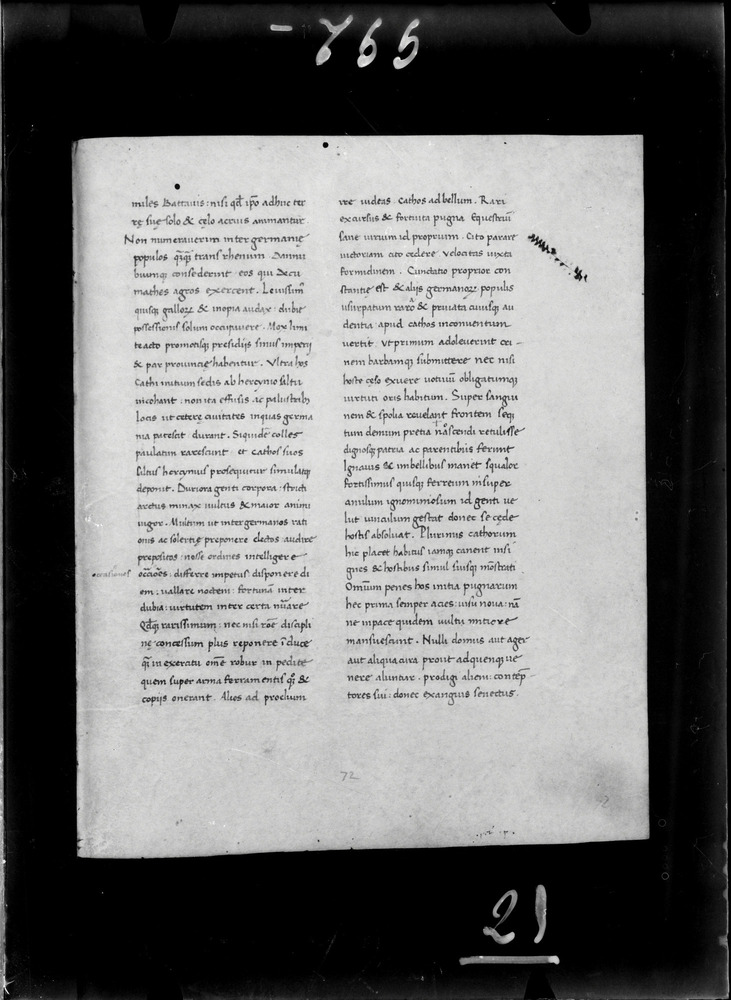 -755
miles Battauis: nisi qđ ipo adhuc ter
rę suę solo & cęlo acrius animantur
Non numerauerim inter germanię
populos qᷓqᷓ trans rhenum Danui
biumq; consederint eos qui Decu
mathes agros exercent. Leuissim9
quisq; gallorꝝ & inopia audax: dubię
possessionis solum occupauere. Mox limi
te acto promotisq; presidijs sinus imperij
& par prouincię habentur. Vltra hos
Cathi initium sedis ab hercynio saltu
incohant: non ita effusis ac palustribꝫ
locis ut ceterę ciuitates in quas germa
nia patescit. durant. Siquidē colles
paulatim rarescunt et cathos suos
saltus hercynius prosequitur simul atq;
deponit. Duriora genti corpora: stricti
artus minax uultus & maior animi
uigor. Multum ut inter germanos rati
onis ac solertię preponere electos: audire
prepositos: nosse ordines intelligere
occasiones
occōes: differre impetus disponere di
em: uallare noctem: fortunā inter
dubia: uirtutem inter certa nūare
Qđq; rarissimum: nec nisi rōe discipli
nę concessum plus reponere ī duce
qᷓ in exercitu omē robur in pedite
quem super arma ferramentis q; &
copijs onerant. Alios ad prœlium
ire uideas cathos ad bellum. Rari
excursus & fortuita pugna Equestriū
sane uirium id proprium. Cito parare
uictoriam cito cedere velocitas iuxta
formidinem. Cunctatio proprior con
stantię est & alijs germanorꝝ populis
usurpatum raro & priuata cuiusq; au
dentia apud cathos in consensum
uertit. vt primum adoleuerint cri-
nem barbamq; submittere nec nisi
hoste ceso exuere uotiuū obligatumq;
uirtuti oris habitum. Super sangui
nem & spolia reuelant frontem seq;
tum demum pretia nascendi retulisse
dignosq; patria ac parentibus ferunt
Ignauis & imbellibus manet squalor
fortissimus quisq; ferreum insuper
anulum ignominiosum id genti ue
lut uinculum gestat donec se cede
hostis absoluat. Plurimis cathorum
hic placet habitus iamq; canent insi
gnes & hostibus simul suisq; mōstrati
Omnium penes hos initia pugnarum
hec prima semper acies: uisu noua: nā
ne in pace quidem uultu mitiore
mansuescunt. Nulli domus aut ager
aut aliqua cura prout ad quemq; ue
nere aluntur. prodigi alieni: contēp-
tores sui: donec exanguis senectus.
72
21